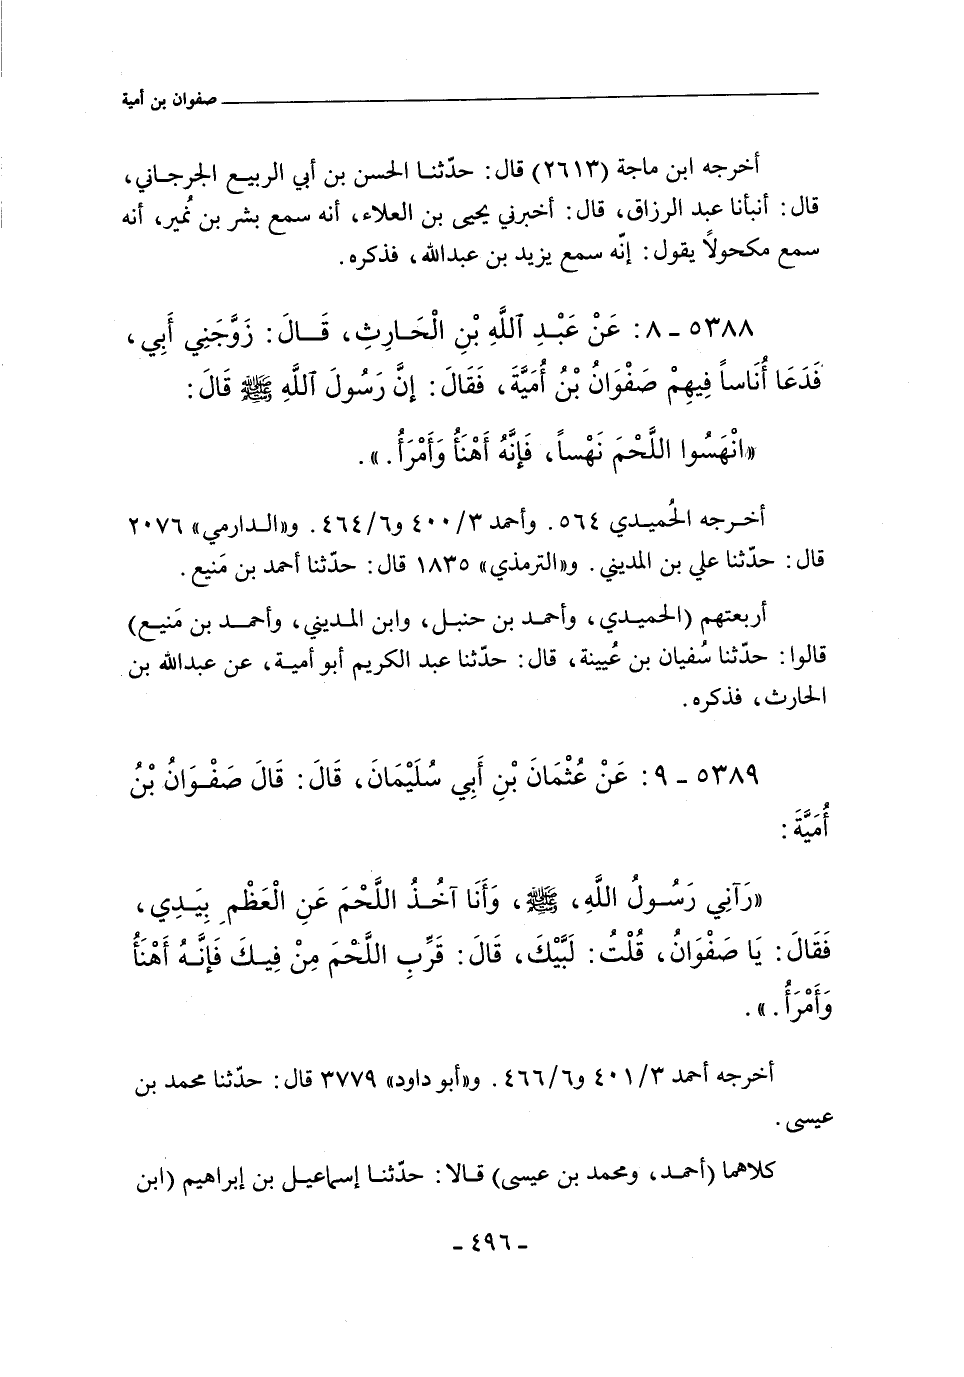 صفوان بن أمية
أخرجه ابن ماجة (٢٦١٣) قال: حدّثنا الحسن بن أبي الربيع الجرجاني،
قال: أنبأنا عبد الرزاق، قال: أخبرني يحيى بن العلاء، أنه سمع بشر بن نُمير، أنه
سمع مكحولاً يقول: إنّه سمع يزيد بن عبدالله، فذكره.
٥٣٨٨ - ٨: عَنْ عَبْدِ ٱللَّهِ بْنِ الْحَارِثِ، قَالَ: زَوَّجَنِي أَبِي،
فَدَعَا أُنَاساً فِيهِمْ صَفْوَانُ بْنُ أُمَيَّةَ، فَقَالَ: إِنَّ رَسُولَ ٱللَّهِ ﷺ قَالَ:
«انْهَسُوا اللَّحْمَ نَهْساً، فَإِنَّهُ أَهْنَأُ وَأَمْرَأُ.».
أخرجه الحُميدي ٥٦٤. وأحمد ٣/٤٠٠ و٦/٤٦٤. و«الدارمي» ٢٠٧٦
قال: حدّثنا علي بن المديني. و«الترمذي» ١٨٣٥ قال: حدّثنا أحمد بن مَنيع.
أربعتهم (الحميدي، وأحمد بن حنبل، وابن المديني، وأحمد بن مَنيع)
قالوا: حدّثنا سُفيان بن عُيينة، قال: حدّثنا عبد الكريم أبو أمية، عن عبدالله بن
الحارث، فذكره.
٥٣٨٩ - ٩: عَنْ عُثْمَانَ بْنِ أَبِي سُلَيْمَانَ، قَالَ: قَالَ صَفْوَانُ بْنُ
أُمَيَّةَ:
«رَآنِي رَسُولُ اللَّهِ، ﷺ، وَأَنَا آخُذُ اللَّحْمَ عَنِ الْعَظْمِ بِيَدِي،
فَقَالَ: يَا صَفْوَانُ، قُلْتُ: لَبَّيْكَ، قَالَ: قَرِّبِ اللَّحْمَ مِنْ فِيكَ فَإِنَّهُ أَهْنَأُ
وَأَمْرَأُ.».
أخرجه أحمد ٣/٤٠١ و٦/٤٦٦. و«أبو داود» ٣٧٧٩ قال: حدّثنا محمد بن
عيسى.
كلاهما (أحمد، ومحمد بن عيسى) قالا: حدّثنا إسماعيل بن إبراهيم (ابن
- ٤٩٦ -